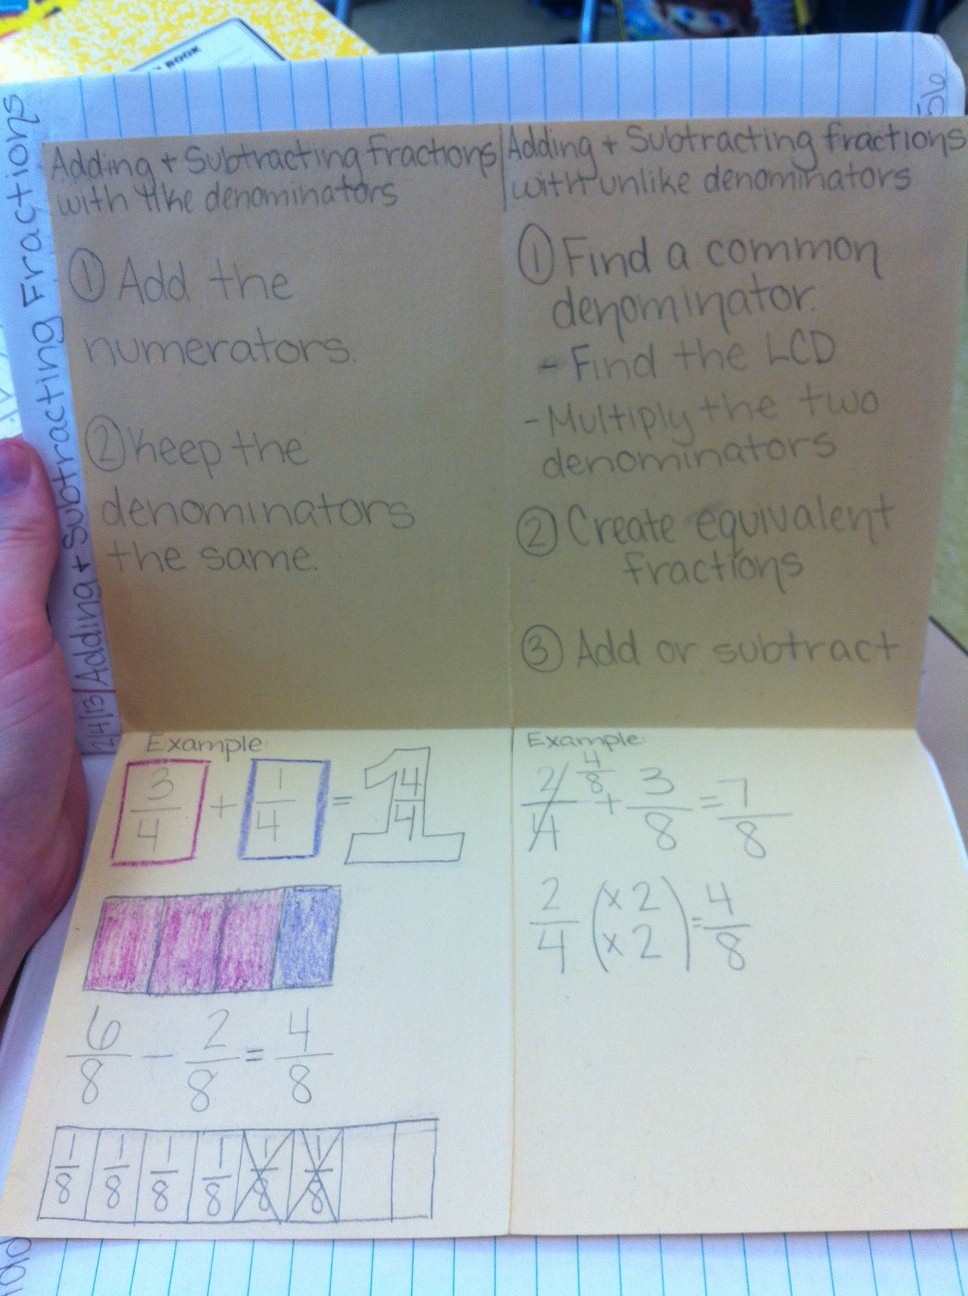 BOOK
56
Adding + Subtracting Fractions
Adding + Subtracting Fractions
with like denominators
① Add the
numerators.
② Keep the
denominators
the same.
Adding + Subtracting fractions
with unlike denominators
① Find a common
denominator.
- Find the LCD
- Multiply the two
denominators
② Create equivalent
fractions
③ Add or subtract
Example:
3/4 + 1/4 = 1 4/4
6/8 - 2/8 = 4/8
1/8 1/8 1/8 1/8 1/8 1/8
Example:
2/4 4/8 + 3/8 = 7/8
2/4 (x2 x2) = 4/8